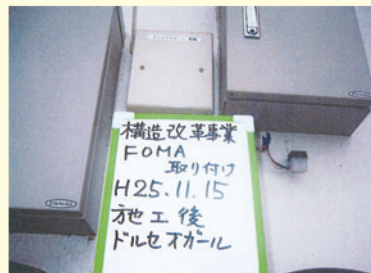 構造改革事業
FOMA
取り付け
H25.11.15
施工後
ドルセオガール